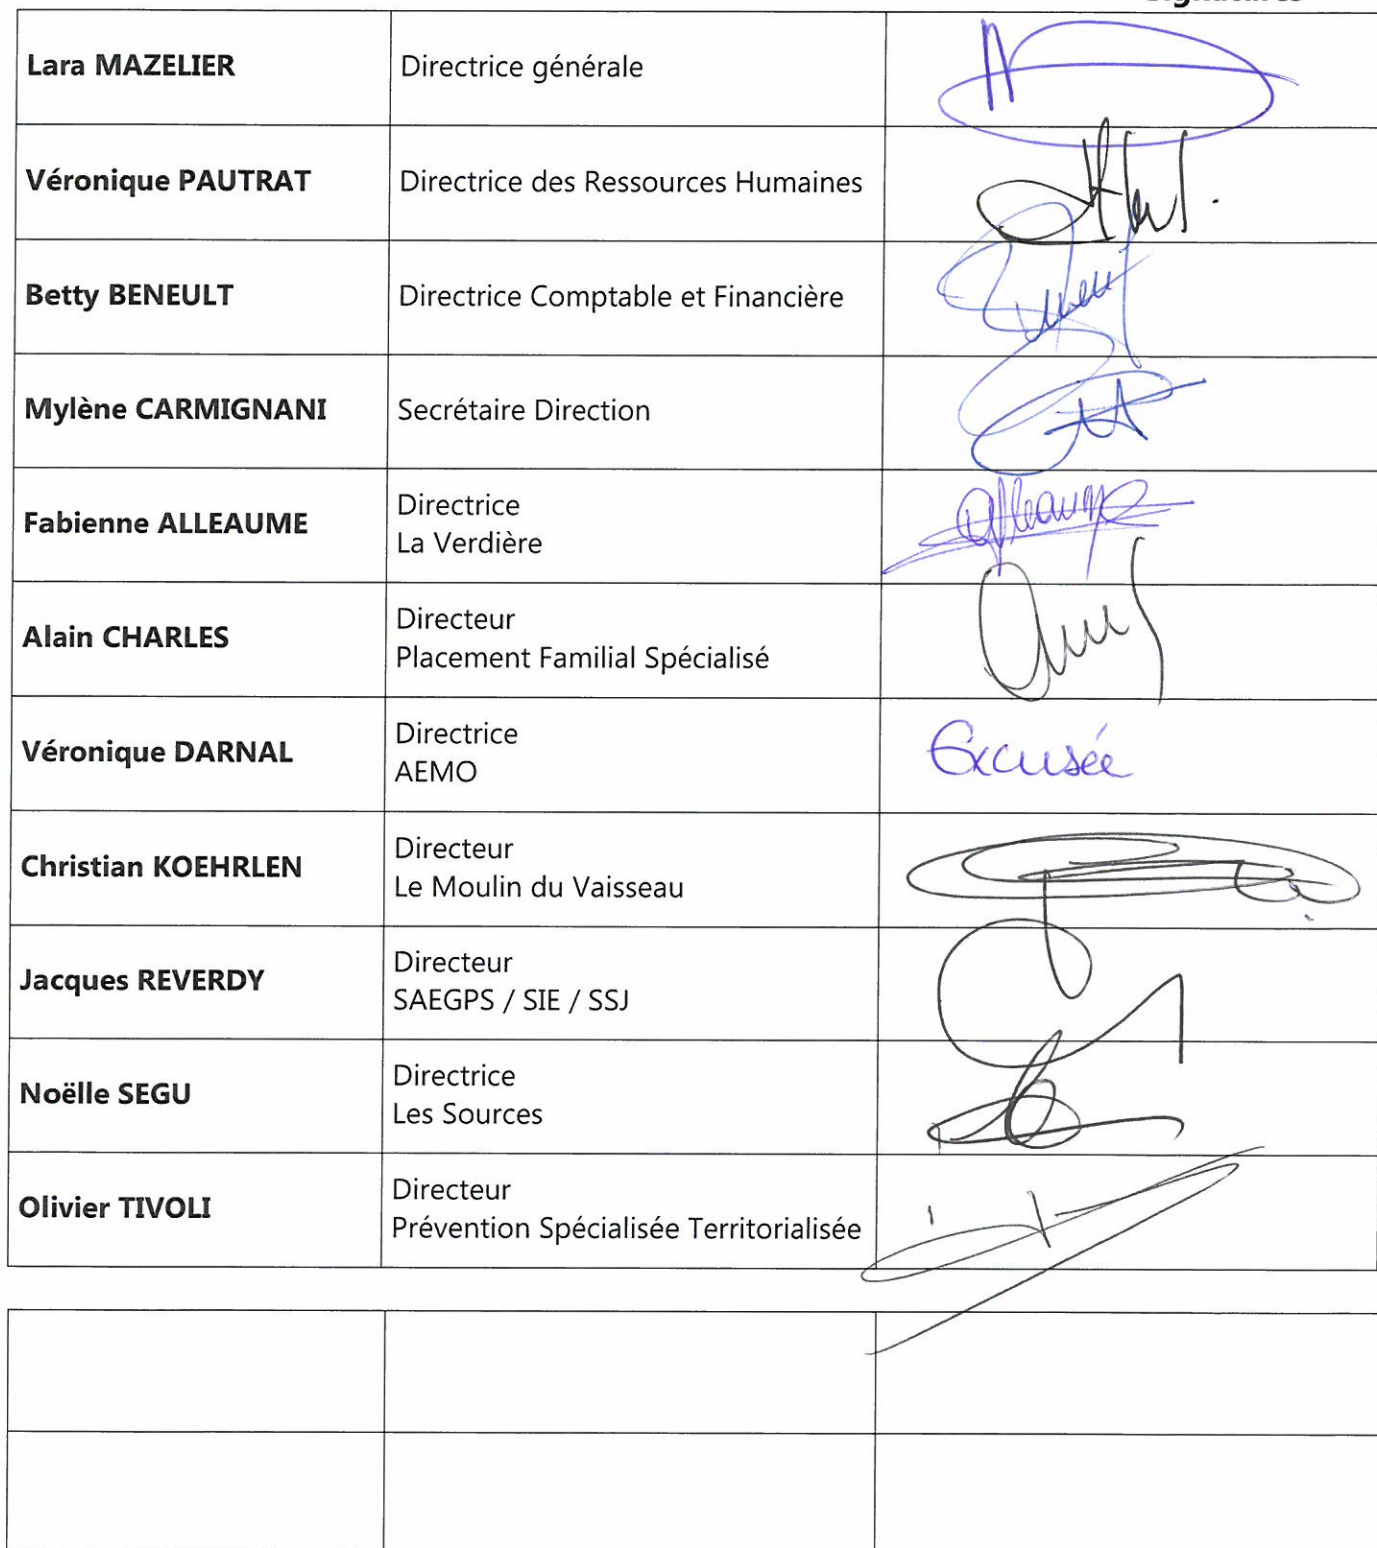 Signatures
Lara MAZELIER
Directrice générale
Véronique PAUTRAT
Directrice des Ressources Humaines
Betty BENEULT
Directrice Comptable et Financière
Mylène CARMIGNANI
Secrétaire Direction
Fabienne ALLEAUME
Directrice
La Verdière
Alleaume
Alain CHARLES
Directeur
Placement Familial Spécialisé
Véronique DARNAL
Directrice
AEMO
Excusée
Christian KOEHRLEN
Directeur
Le Moulin du Vaisseau
Jacques REVERDY
Directeur
SAEGPS / SIE / SSJ
Noëlle SEGU
Directrice
Les Sources
Olivier TIVOLI
Directeur
Prévention Spécialisée Territorialisée